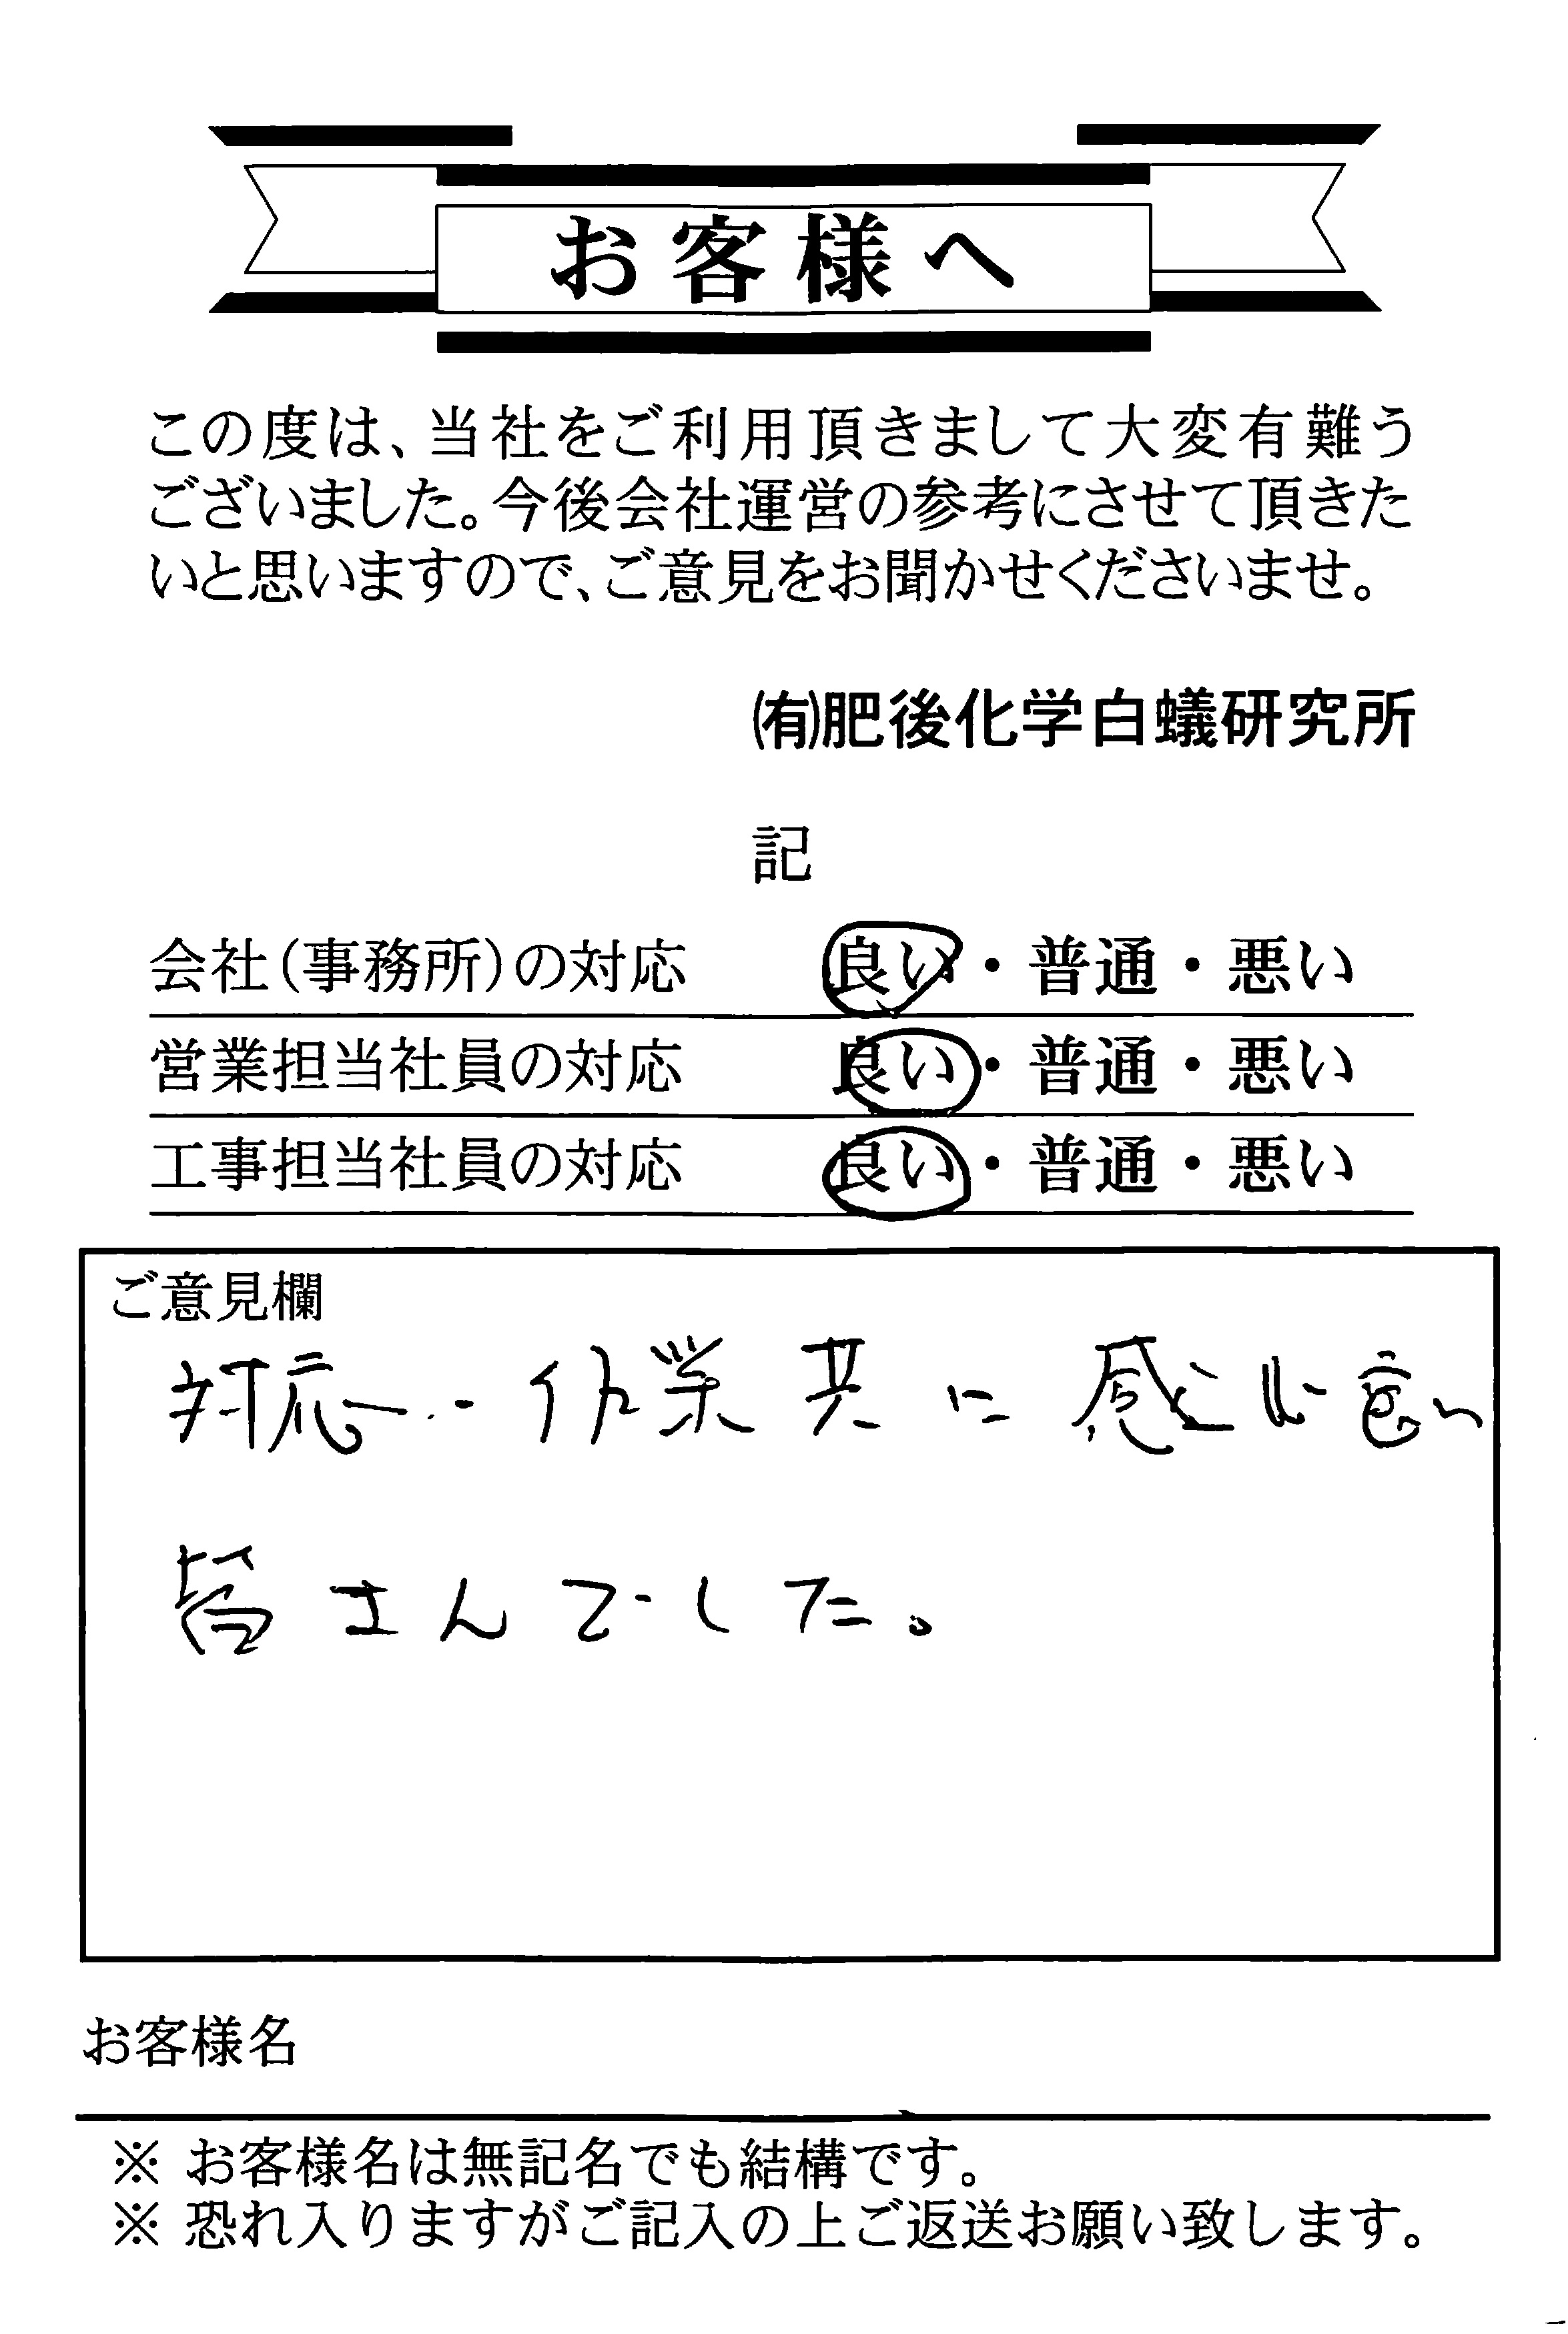 お客様へ
この度は、当社をご利用頂きまして大変有難う
ございました。今後会社運営の参考にさせて頂きた
いと思いますので、ご意見をお聞かせくださいませ。
㈲肥後化学白蟻研究所
記
会社(事務所)の対応 良い・普通・悪い
営業担当社員の対応 良い・普通・悪い
工事担当社員の対応 良い・普通・悪い
ご意見欄
対応・作業共に感じ良い
皆さんでした。
お客様名
※ お客様名は無記名でも結構です。
※ 恐れ入りますがご記入の上ご返送お願い致します。